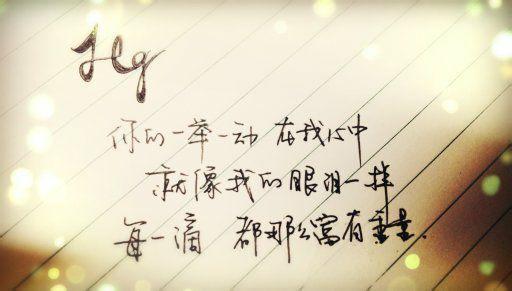 Hg
你的一举一动 在我心中
就像我的眼泪一样
每一滴 都那么富有重量.